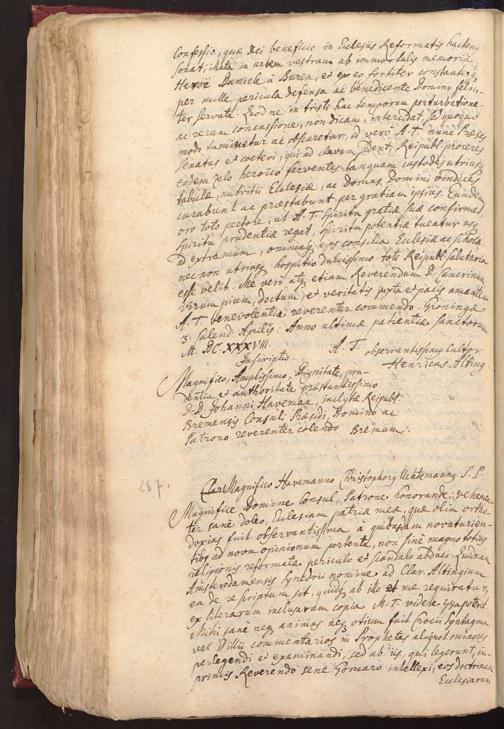 Confessio, quæ Dei beneficio in Ecclesiis Reformatis hactenus
sonat; illata in urbem vestram ab immortalis memoriæ
Heroë Daniele à Buren, et ex eo fortiter constanterq
per mille pericula defensa ac benedicente Domino felici-
ter servata. Quod ne in tristi hac temporum perturbatione
ac rerum concussione, non dicam, intercidat, sed quoquo
modo taminetur ac obscuretur, id verò A. T. nunc Præses
Senatus et cæteri, qui ad clavum sedent, Reipubl. proceres
eodem zelo heroico ferventes tanquam custodes utriusq
tabulæ, nutritii Ecclesiæ, ac Domus Domini vindices
curabunt ac præstabunt per gratiam ipsius. Eundem
oro toto pectore, ut A. T. Spiritu gratiæ suæ confirmet
Spiritu prudentiæ regat, Spiritu potentiæ tueatur usq
ad extremum, omniaq ejus consilia Ecclesiæ ac scholæ
nec non utriusq hospitio dulcissimo toti Reipubl. salutaria
esse velit. Me verò atq etiam Reverendum D.
virum pium, doctum, et veritatis juxta et pacis amantem
A. T. benevolentiæ reverenter commendo. Groningæ
3. Calend. Aprilis. Anno ultimæ patientiæ Sanctorum
M. DC. XXXVIII.
A. T. observantissimus Cultor
Inscriptio
Henricus Alting.
Magnifico, Amplissimo, Dignitate, pru-
dentia et authoritate præstantissimo
D. D. Johanni Haveman, inclytæ Reipubl.
Bremensis Consuli Præsidi, Domino ac
Patrono reverenter colendo Bremam.
257.
Clar. Magnifico Havemanno Christophorus Uchtmannus S. P.
Magnifice Domine Consul, Patrone honorande; vehemen-
ter sanè doleo, Ecclesiam patriæ meæ, quæ olim ortho-
doxiæ fuit observantissima à quibusdam novaturien-
tibus ad novarum opinionum portenta, non sine magno totius
religionis reformatæ periculo et scandalo abduci. Quidnam
Amsterodamensis Synedrii nomine ad Clar. Altingium
ea de re scriptum sit, quidq ab illo et me requiratur,
ex literarum inclusarum copia M. T. videre ipsa poterit
Mihi sanè neq animus neq otium fuit Crocii Syntagma
vel Willii commentarios in Prophetas aliquot minores
perlegendi et examinandi, sed ab iis, qui legerunt, in-
primis Reverendo sene Gomaro intellexi, eos doctrinam
Ecclesiarum